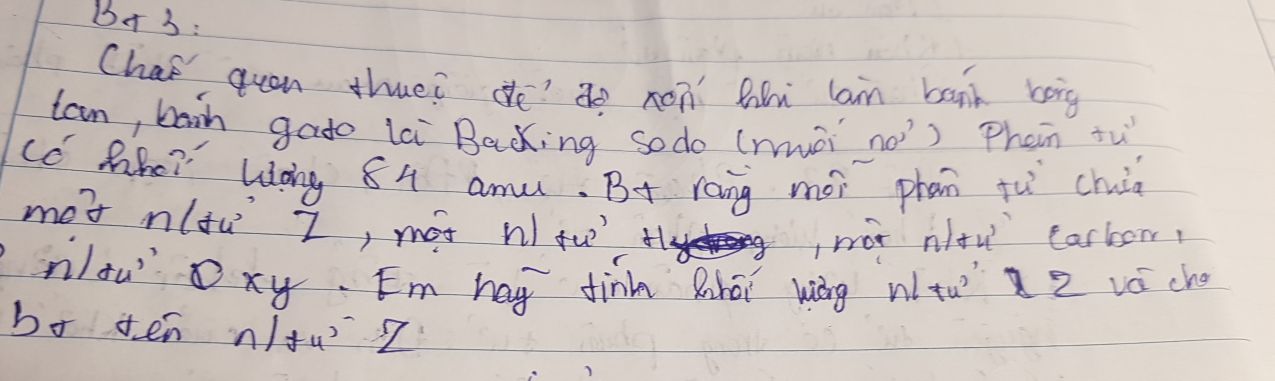 BT 3:
Chất quen thuộc để độ xốp khi làm bánh bông
lan, bánh gato là Backing sodo (muối nở) Phân tử
có khối lượng 84 amu. BT rằng mỗi phân tử chứa
một n/tử Z, một n/tử, một n/tử carbon,
n/tử Oxy. Em hãy tính khối lượng n/tử Z và cho
bt tên n/tử Z